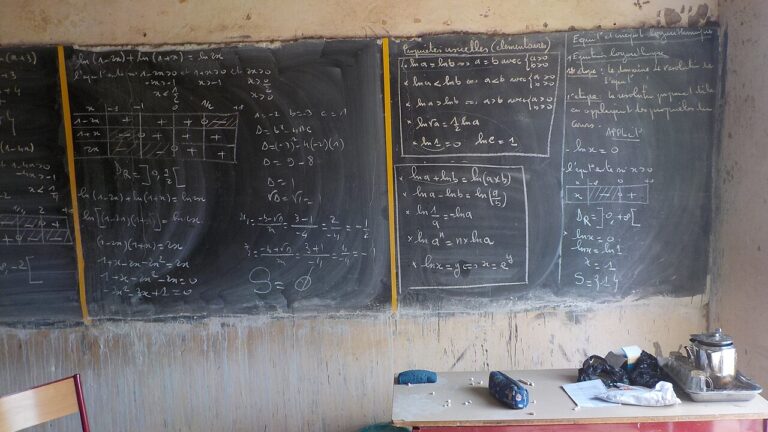 ln(1-2x)+ln(1+x) = ln2x
l'équat existe si 1-2x>0 et 1+x>0 et 2x>0
-2x>-1 x>-1 x>0/2
x<1/2 x>0
x -∞ -1 0 1/2 +∞
1-2x + + + 0
1+x 0 + + +
2x 0 + +
D_R = ]0, 1/2[
ln(1-2x)+ln(1+x) = ln2x
ln[(1-2x)(1+x)] = ln2x
(1-2x)(1+x) = 2x
1+x-2x-2x²=2x
1-x-2x²-2x=0
-2x²-3x+1=0
a=-2 b=-3 c=1
Δ=b²-4ac
Δ=(-3)²-4(-2)(1)
Δ=9-8
Δ=1
√Δ=√1=1
x₁=(-b-√Δ)/2a=(3-1)/-4=2/-4=-1/2
x₂=(-b+√Δ)/2a=(3+1)/-4=4/-4=-1
S=∅
Propriétés usuelles (élémentaires)
* ln a = ln b ⟺ a=b avec {a>0 b>0
* ln a < ln b ⟺ a<b avec {a>0 b>0
* ln a > ln b ⟺ a>b avec {a>0 b>0
* ln√a = 1/2 ln a
* ln1=0 ln e = 1
* ln a + ln b = ln(a×b)
* ln a - ln b = ln(a/b)
* ln 1/a = -ln a
* ln aⁿ = n×ln a
* ln x = y ⟺ x = e^y
Equat° et inéquat logarithmique
Equation logarithmique
1è étape : le domaine de résolution de l'équat°
2è étape : la résolution proprement dite
en appliquant les propriétés du
cours.
APPLI 1
- ln x = 0
l'équat existe si x>0
x -∞ 0 +∞
x +
D_R = ]0, +∞[
ln x = 0
ln x = ln 1
x = 1
S={1}